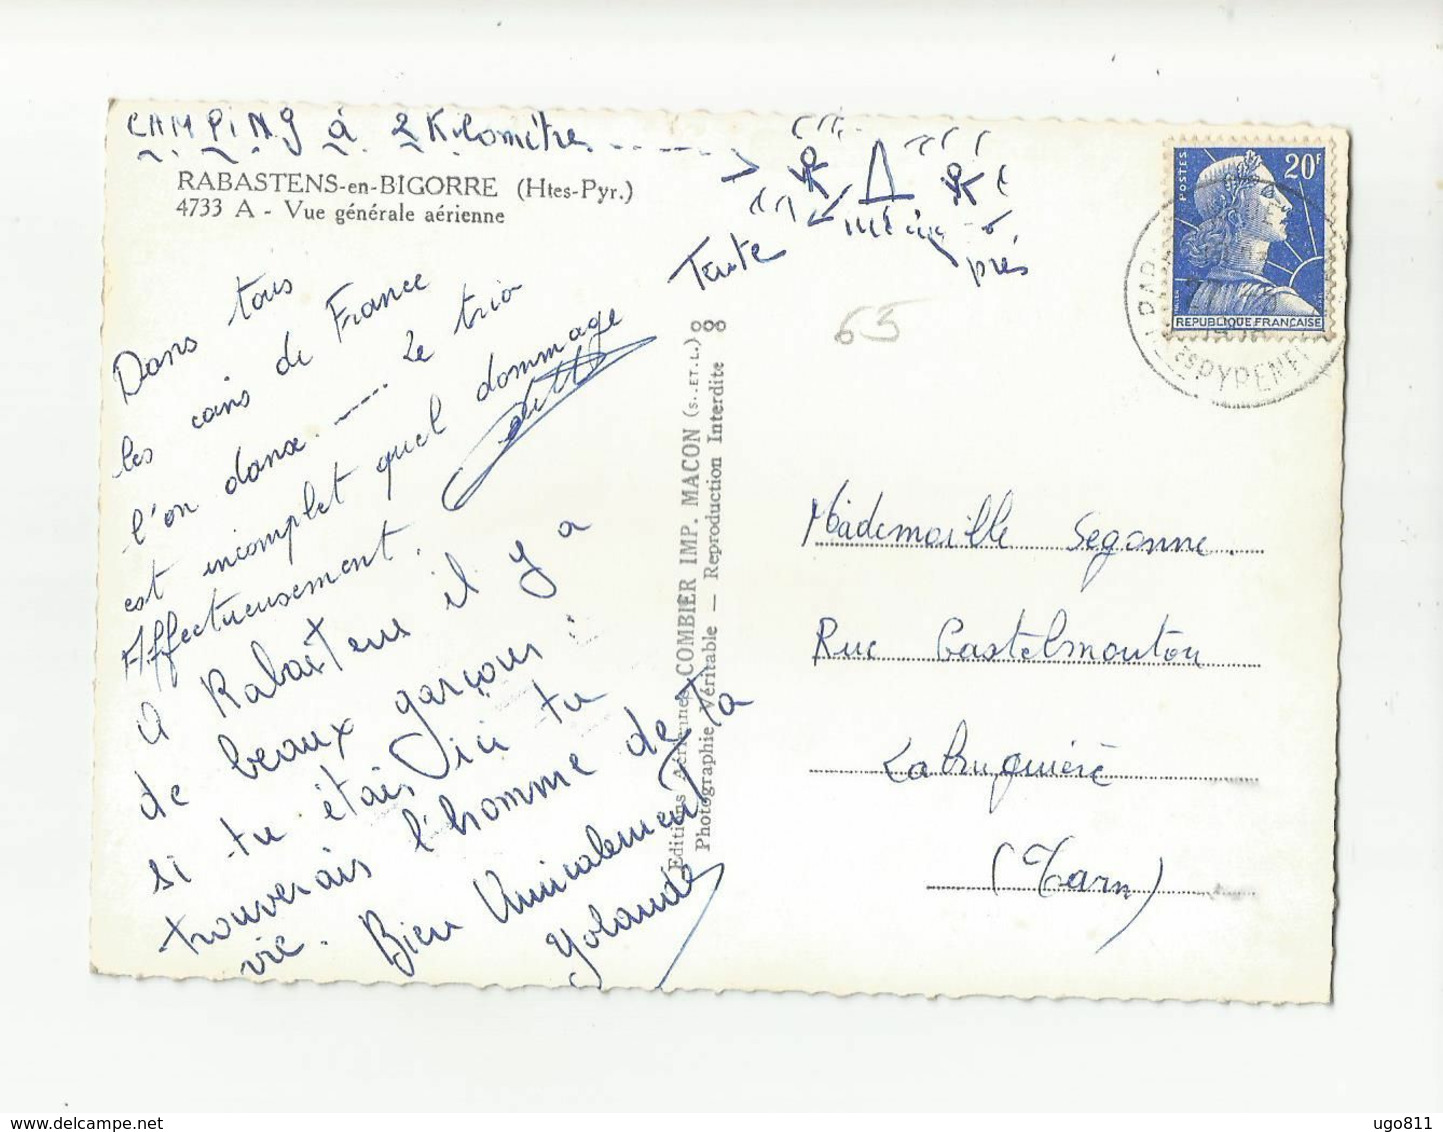 CAMPiNg à 2 Kilomètres
RABASTENS-en-BIGORRE (Htes-Pyr.)
4733 A - Vue générale aérienne
Tente
près
65
Dans tous
les coins de France
l'on danse. Le trio
est incomplet quel dommage
Affectueusement.
A Rabastens il y a
de beaux garçons!
si tu étais ici tu
trouverais l'homme de Ta
vie. Bien Amicalement
Yolande
Editions Aériennes COMBIER IMP. MACON (S.-ET-L.)
Photographie Véritable — Reproduction Interdite
POSTES
20F
REPUBLIQUE FRANÇAISE
Mademoiselle Segonne.
Rue Castelmouton
Labruguière
(Tarn)
delcampe.net
ugo811